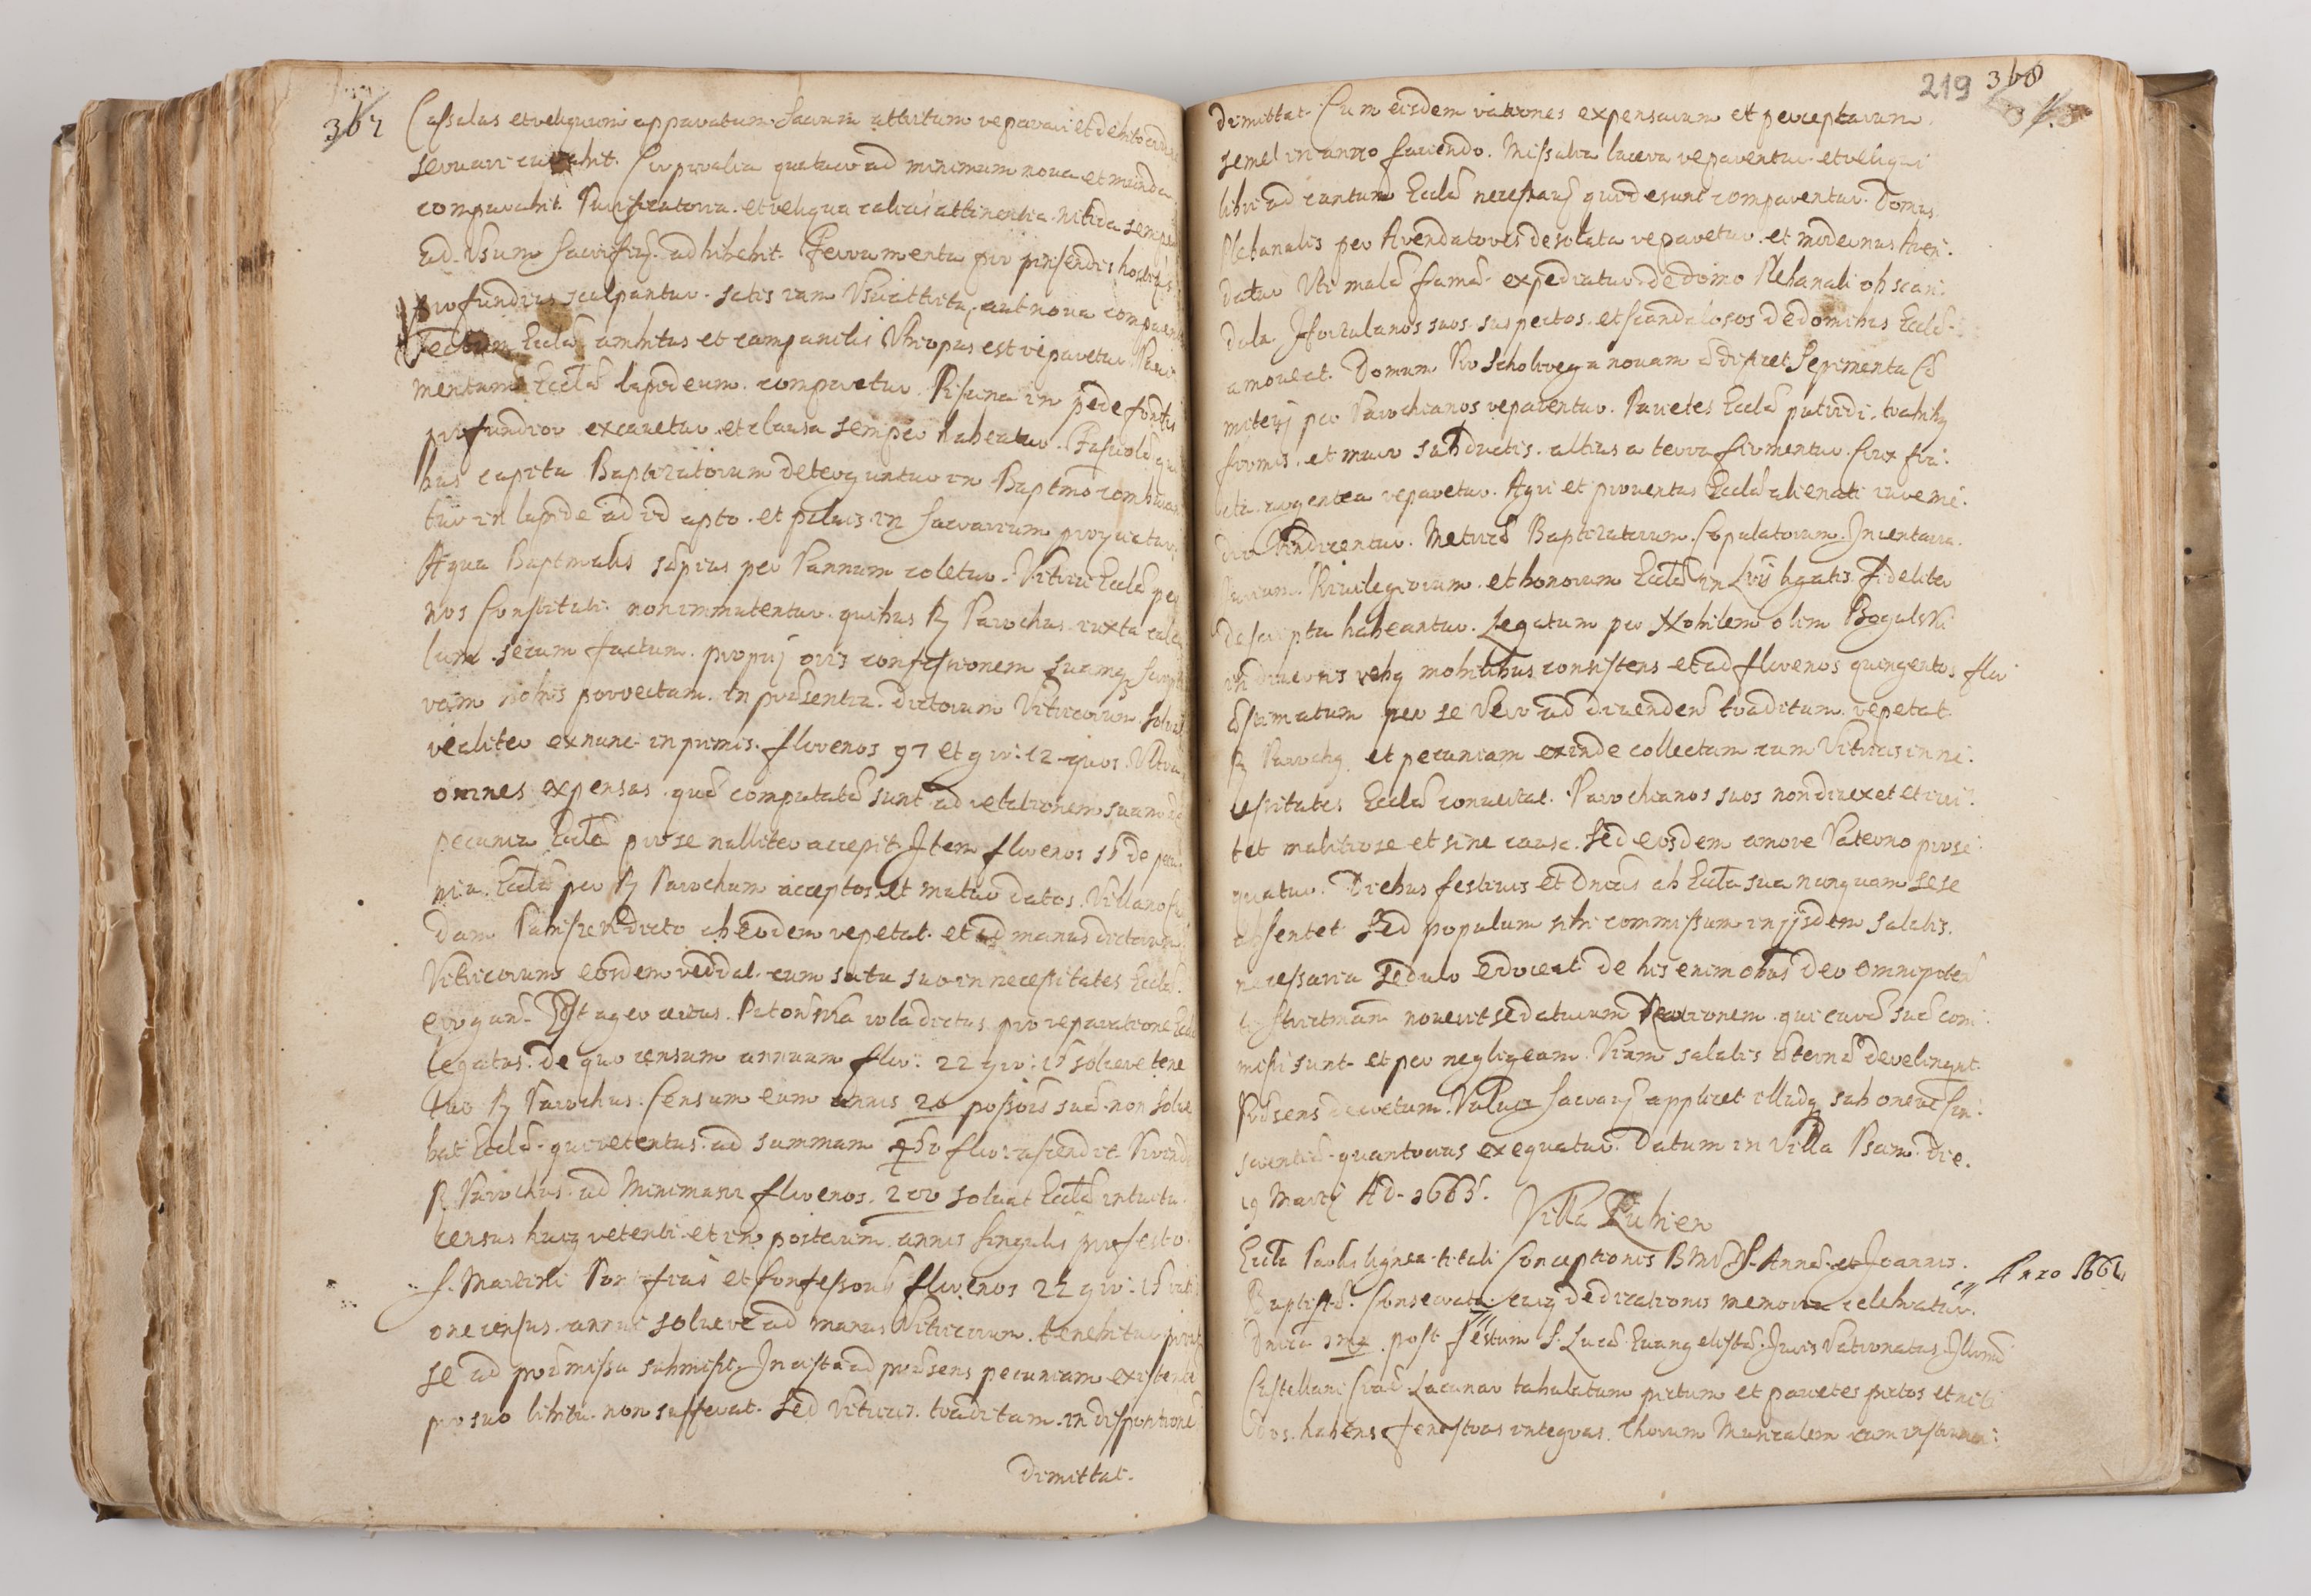 367
Cassulas et reliquum apparatum Sacrum attritum reparari et debito ordine
servari curabit. Corporalia quatuor ad minimum nova et munda
comparabit. Purificatoria et reliqua calicis attinentia nitida semper
ad usum Sacrificij adhibebit. Ferramenta pro pinsendis hostijs
profundius scalpantur satis iam Usu attrita, aut nova comparentur
Tectum Eccliæ ambitus et campanilis Ubi opus est reparetur. Pavi
mentum Eccliæ lapideum comparetur. Piscina in pede fontis
profundior excavetur et clausa semper habeatur. Fasciolæ qui
bus capita Baptizatorum deterguntur in Baptmo comburan
tur in lapide ad id apto et pulvis in Sacrarium proijciatur
Aqua Baptmalis sæpius per Pannum coletur. Vitrici Eccliæ per
nos Constituti non immutentur quibus R Parochus iuxta calcu
lum secum factum proprij oris confessionem suamq scriptu
ram nobis porrectam in præsentia dictorum Vitricorum solvat
realiter ex nunc inprimis florenos 97 et gr: 12 quos Ultra
omnes expensas quæ computatæ sunt ad relationem suam de
pecunia Eccliæ pro se nulliter accepit. Item florenos 15 de pecu
nia Eccliæ per R Parochum acceptos et mutuo datos Villano
dam dicto ab Eodem repetat et ad manus dictorum
Vitricorum eosdem reddat cum satu suo in necessitates Eccliæ
erogand. Est ager rola dictus pro reparatione Eccliæ
legatus. De quo censum annuum flor: 22 gr: 15 solvere tene
tur R Parochus. Censum eum annis 20 possōis suæ non solve
bat Eccliæ qui retentus ad summam 450 flor ascendit. Proinde
R Parochus ad Minimum florenos 200 solvat Eccliæ intuitu
census huiq retenti et in posterum annis singulis pro festo
S. Martini Pontificis et Confessoris florenos 22 gr: 15 rati
one census annui solvere ad manus Vitricorum tenebitur prout
se ad præmissa submisit. In cista ad præsens pecuniam existentem
pro suo libitu non sufferat. Sed Vitricis traditam in dispositione
dimittat.
219 368
dimittat. Cum eisdem rationes expensarum et perceptarum
semel in anno faciendo. Missalia lacera reparentur et reliqui
libri ad cantum Eccliæ necessarij qui desunt comparentur. Domus
Plebanalis per Arendatores desolata reparetur et modernus Aren:
dator Uti malæ famæ expediatur de domo Plebanali ob scan:
dala. Hortulanos suos suspectos et scandalosos de domibus Eccliæ
amoveat. Domum Pro Scholirega novam ædificet Sepimenta Cæ
miterij per Parochianos reparentur. Parietes Eccliæ putridi trabibq
firmis et muro subductis altius a terra firmentur. Crux fra:
cta argentea reparetur. Agri et proventus Eccliæ alienati iure me:
dio Vindicentur. Metricæ Baptizatorum Copulatorum. Inventaria
Iurium Privilegiorum et bonorum Eccliæ in libris ligatis fideliter
descripta habeantur. Legatum per Nobilem olim Bogulski
in diversis rebq mobilibus consistens et ad florenos quingentos flor
æstimatum per se Vero ad divenden traditum repetat
R Parochq et pecuniam exinde collectam cum Vitricis in ne:
cessitates Eccliæ convertat. Parochianos suos non divexet et cui:
tet malitiose et sine causa. Sed eosdem amore Paterno prose:
quatur. Diebus festivis et Dnicis ab Ecclia sua nunquam sese
absentet sed populum sibi commissum in ijsdem salutis
necessaria sedulo edoceat de his enim oibus deo Omnipoten
ti strictmam noverit se daturum Rationem qui curæ suæ com:
missi sunt et per negligeam Viam salutis æternæ derelinqut.
Præsens decretum Valvis Sacrarij applicet illudq sub onere Con:
scientiæ quantocius exequatur. Datum in Villa Psam die
19 Martij Ad. 1665.
Villa Lubien
Ecclia Paroclis lignea tituli Conceptionis BMV S. Annæ et Joannis
Baptistæ. Consecrata cuiq dedicationis memoria celebratur
Anno 1661
Dnica 1ma post festum S. Lucæ Evangelistæ. Iuris Patronatus Illmi
Castellani Lacunar tabulatum pictum et parietes pictos et niti
dos habens fenestras integras. Chorum Musicalem cum instrumen: